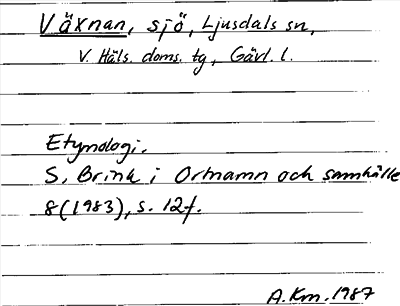 Växnan, sjö, Ljusdals sn,
V. Häls. doms. tg, Gävl. l.
Etymologi.
S. Brink i Ortnamn och samhälle
8(1983), s. 12f.
A.Km.1987